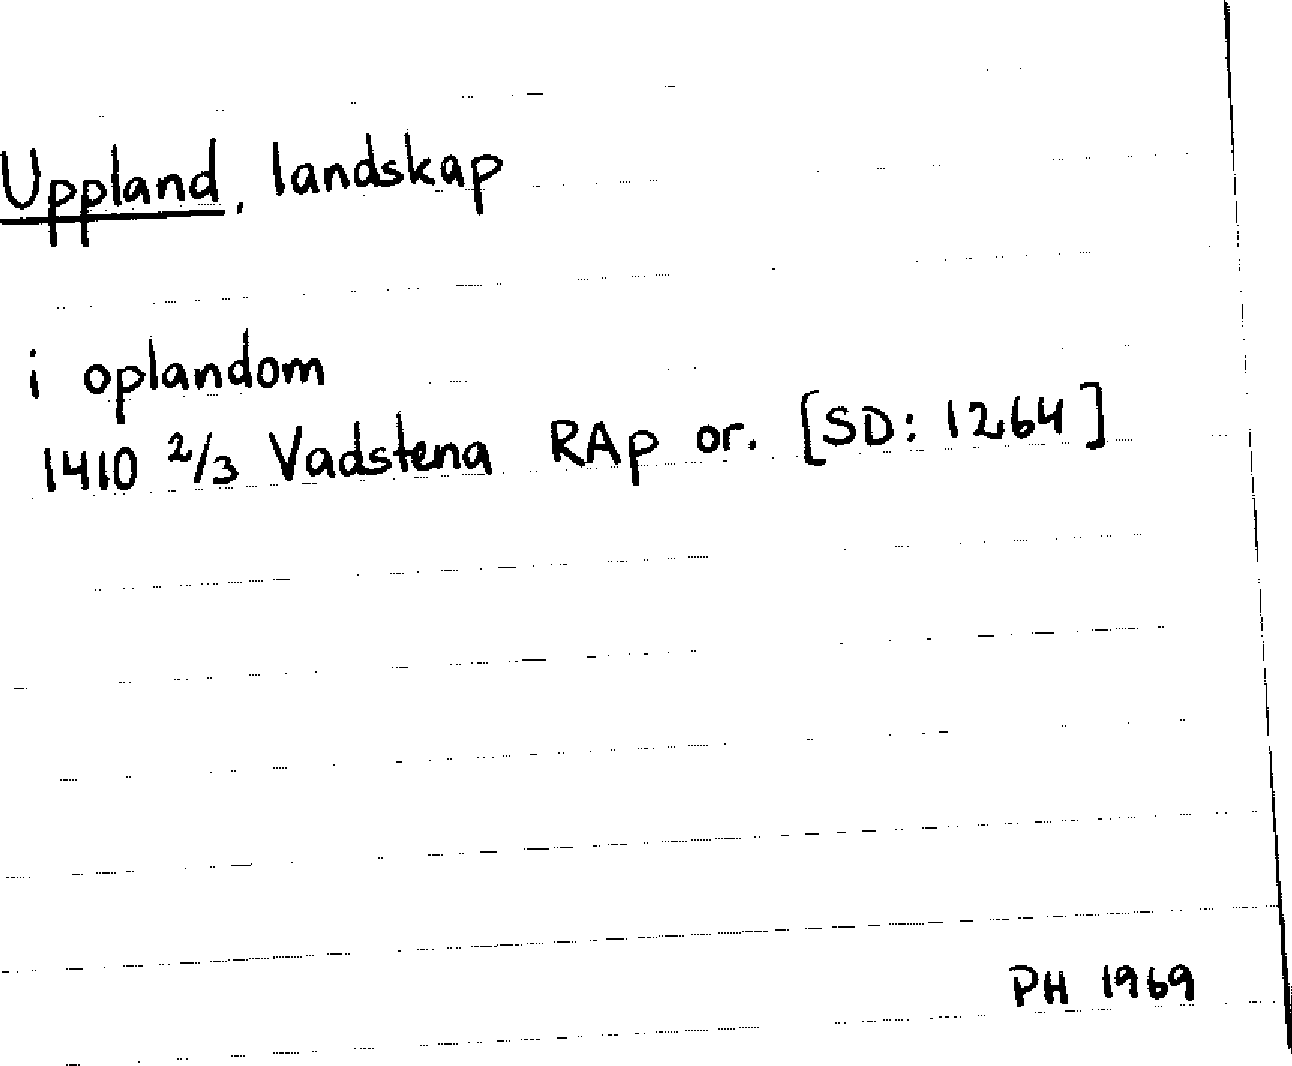 Uppland, landskap
i oplandom
1410 2/3 Vadstena RAp or. [SD: 1264]
PH 1969